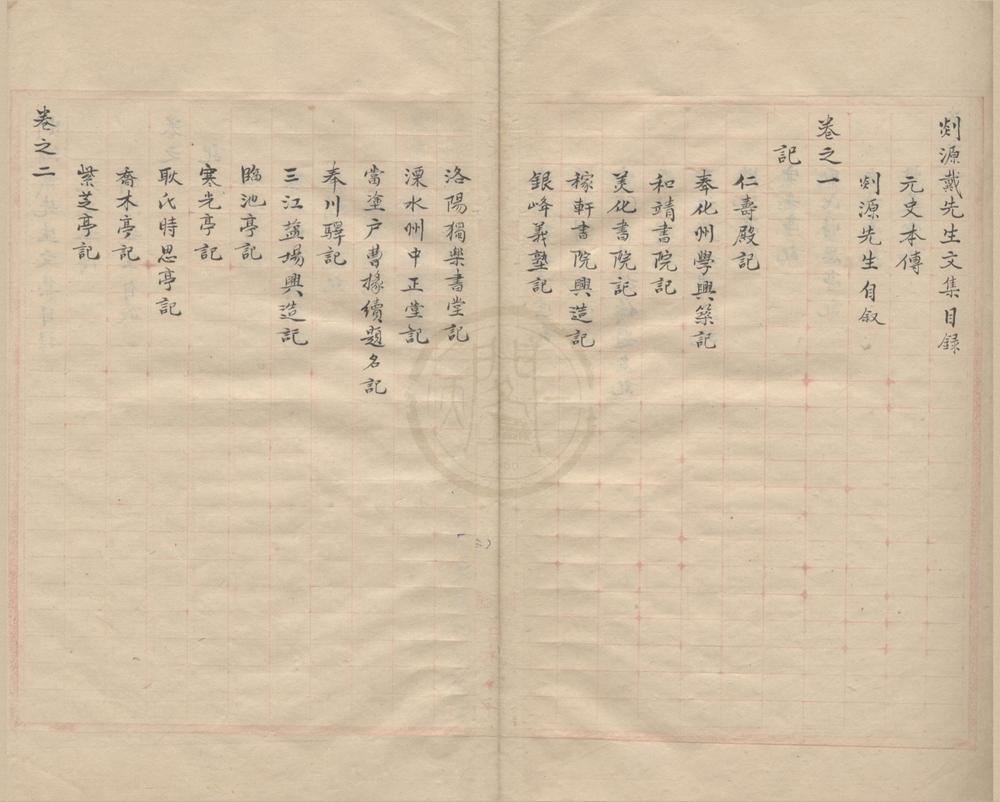 剡源戴先生文集目録
元史本傳
剡源先生自叙
卷之一
記
仁壽殿記
奉化州學興築記
和靖書院記
美化書院記
稼軒書院興造記
銀峰義塾記
洛陽獨樂書堂記
溧水州中正堂記
當塗戶曹掾續題名記
奉川驛記
三江鹽場興造記
臨池亭記
寒光亭記
耿氏時思亭記
喬木亭記
紫芝亭記
卷之二